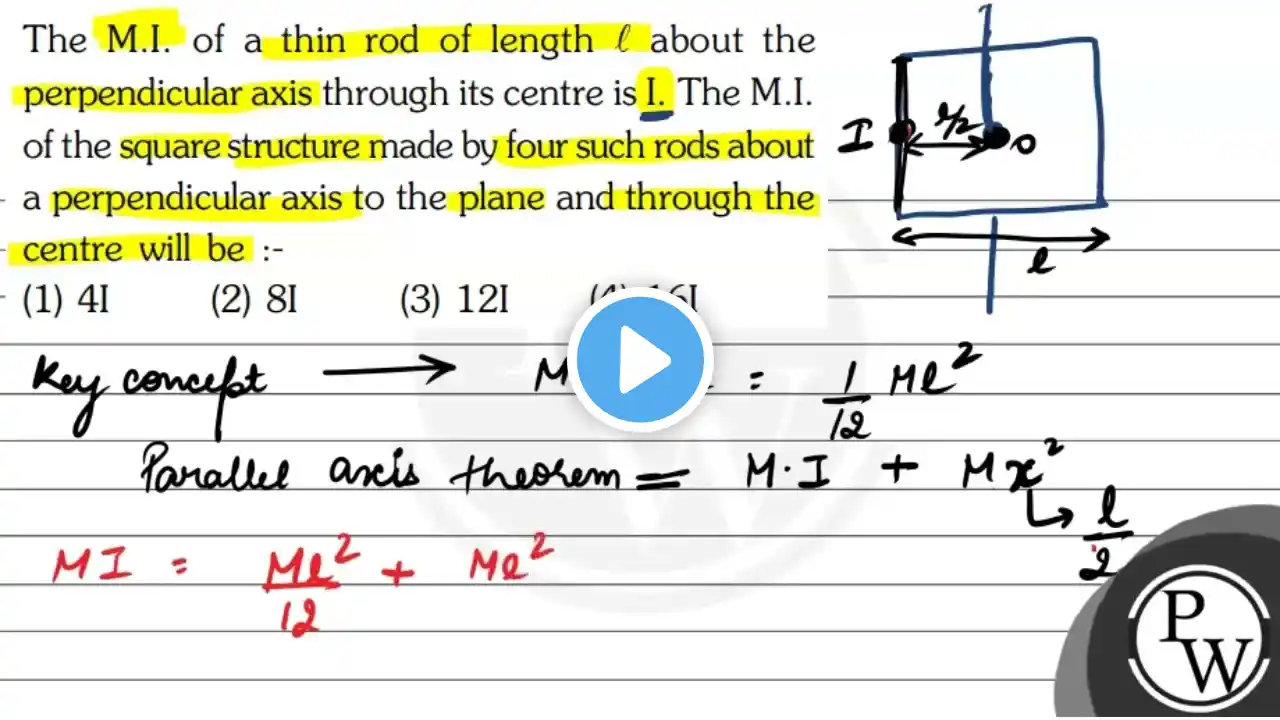 The M.I. of a thin rod of length ℓ about the
perpendicular axis through its centre is I. The M.I.
of the square structure made by four such rods about
a perpendicular axis to the plane and through the
centre will be :-
(1) 4I (2) 8I (3) 12I (4) 16I
I l/2 O
l
Key concept → M = 1/12 Ml²
Parallel axis theorem = M·I + Mx²
↳ l/2
MI = Ml²/12 + Ml²
P
W